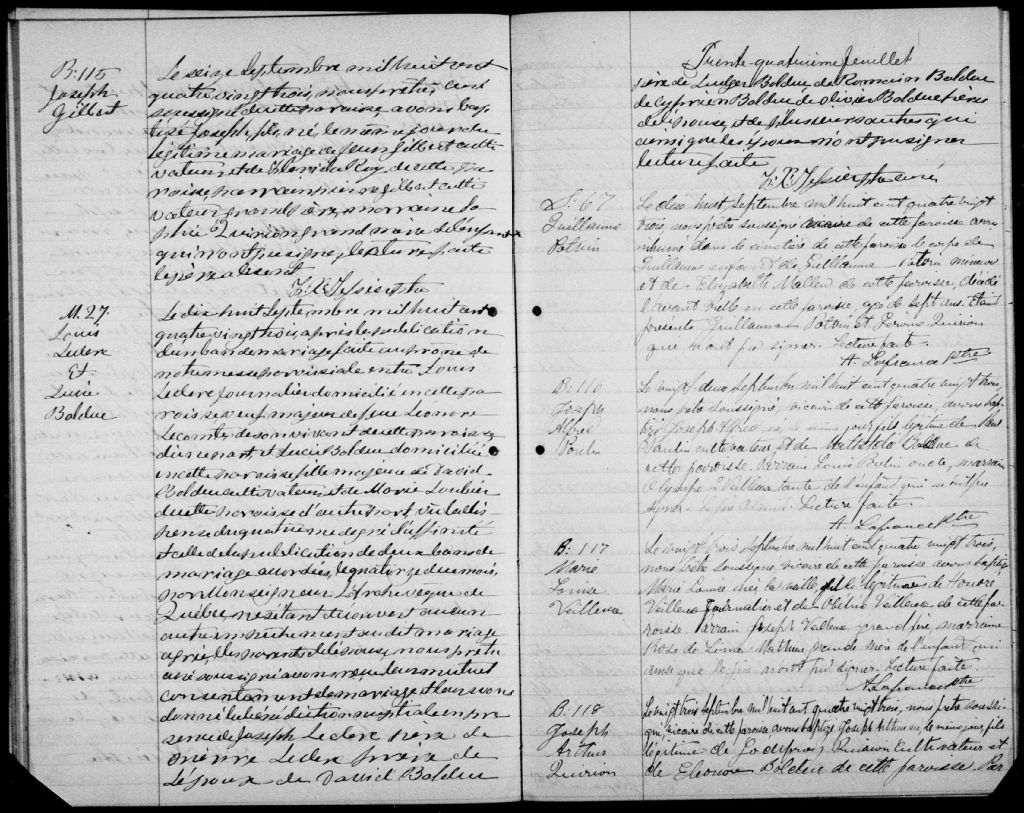 B: 115
Joseph
Gilbert
Le seize Septembre mil huit cent
quatre vingt trois, nous prêtre, curé
soussigné de cette paroisse, avons bap
tisé Joseph, fils, né le même jour du
légitime mariage de Jean Gilbert culti
vateur et de Florida Roy de cette pa
roisse, parrain Gilbert culti
vateur, grand père, marraine So
phie Quirion, grand mère de l'enfant
qui n'ont pu signer, lecture faite
le père absent
F. R. Tessier Ptre
M. 27.
Louis
Leclerc
Et
Lucie
Bolduc
Le dix huit Septembre mil huit cent
quatre vingt trois, après la publication
d'un ban de mariage faite au prône de
notre messe paroissiale entre Louis
Leclerc Journalier domicilié en cette pa
roisse veuf majeur de feue Léonore
Lecomte de son vivant de cette paroisse
d'une part, et Lucie Bolduc domiciliée
en cette paroisse fille majeure de David
Bolduc cultivateur, et de Marie Loubier
de cette paroisse d'autre part, vu la dis-
pense du quatrième degré d'affinité
et celle de la publication de deux bans de
mariage accordées, le quatorze du mois,
par Monseigneur L'Archevêque de
Québec, ne s'étant découvert aucun
autre empêchement au dit mariage
agréé des parents de l'épouse, nous prêtre
curé soussigné avons reçu leur mutuel
consentement de mariage et leur avons
donné la bénédiction nuptiale en pré
sence de Joseph Leclerc père de
Leclerc frère de
L'époux de David Bolduc
Trente-quatrième feuillet
père de Ludger Bolduc de Romain Bolduc
de Cyprien Bolduc de Olivier Bolduc frères
de l'épouse, et de plusieurs autres qui
ainsi que les époux n'ont pu signer
lecture faite
F. R. Tessier Ptre curé
S: 67
Guillaume
Potvin
Le dix huit Septembre mil huit cent quatre vingt
trois, nous prêtre soussigné vicaire de cette paroisse avons
inhumé dans le cimetière de cette paroisse le corps de
Guillaume enfant de Guillaume Potvin mineur
et de Elizabeth de cette paroisse, décédé
l'avant veille en cette paroisse, âgé de sept ans. Etant
présents Guillaume Potvin et Quirion
qui n'ont pu signer. Lecture faite.
A. Lafrance Ptre
B: 116
Joseph
Alfred
Poulin
Le vingt deux Septembre mil huit cent quatre vingt trois,
nous prêtre soussigné, vicaire de cette paroisse, avons bap
tisé Joseph Alfred né le même jour fils légitime de
Poulin cultivateur et de Mathilda Bolduc de
cette paroisse. Parrain Louis Poulin oncle, marraine
Olympe Veilleux tante de l'enfant qui n'ont pu
signer. Lecture faite.
A. Lafrance Ptre
B: 117
Marie
Louise
Veilleux
Le vingt trois Septembre mil huit cent quatre vingt trois,
nous prêtre soussigné, vicaire de cette paroisse avons baptisé
Marie Louise née la veille, fille légitime de Honoré
Veilleux Journalier et de Obéline Veilleux de cette pa
roisse. Parrain Joseph Veilleux grand père marraine
Rose de Lima Mathieu grande mère de l'enfant qui
ainsi que le père n'ont pu signer. Lecture faite.
A. Lafrance Ptre
B: 118
Joseph
Arthur
Quirion
Le vingt trois Septembre mil huit cent quatre vingt trois, nous prêtre soussi-
gné, vicaire de cette paroisse avons baptisé Joseph Arthur né le même jour, fils
légitime de Quirion Cultivateur et
de Eléonore Bolduc de cette paroisse. Par